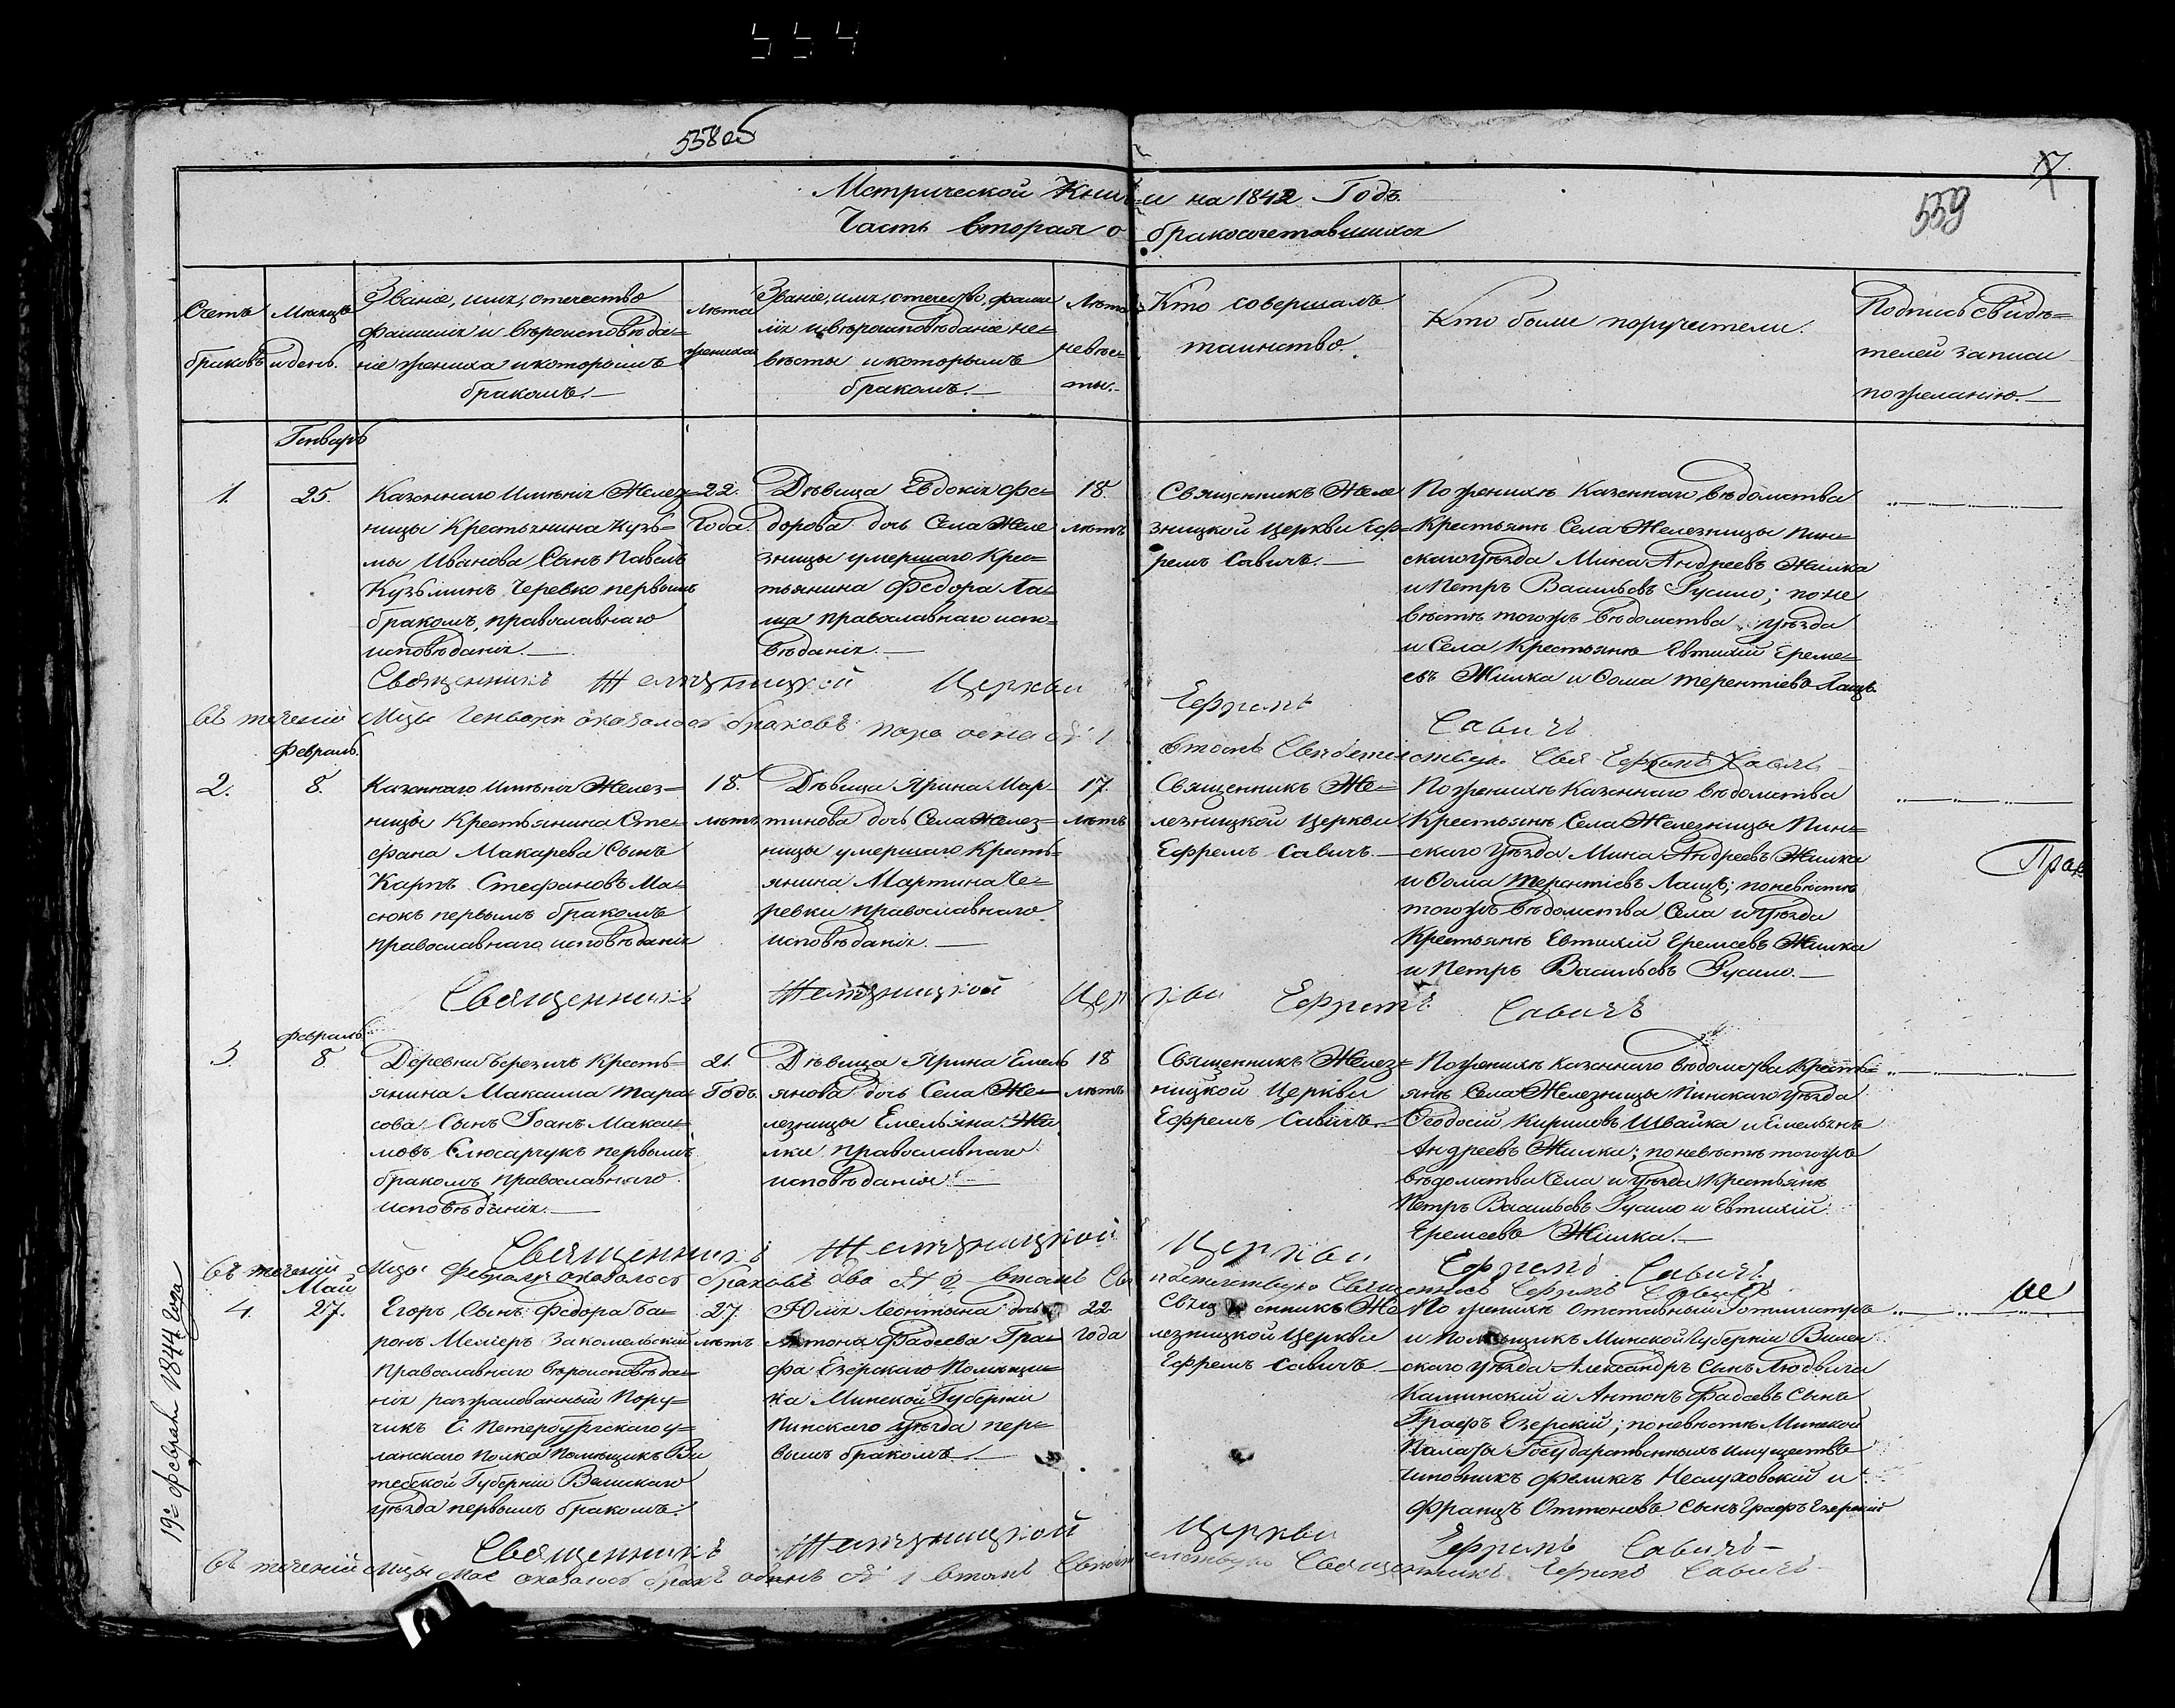 554
558об
7
559
Метрической Книги на 1842 Годъ.
Часть вторая о бракосочетавшихся
Счетъ браковъ
Месяцъ и день.
Званіе, имя, отечество
фамилія и вероисповѣда=
ніе жениха и которымъ
бракомъ.—
Лѣта
жениха
Званіе, имя, отечество, фами
лія и вѣроисповѣданіе не=
вѣсты и которымъ
бракомъ.—
Лѣта
невѣс=
ты.—
Кто совершалъ
таинство.
Кто были поручители.
Подпись свидѣ=
телей записи
по желанію.—
Генварь
1.
25.
Казеннаго Имѣнія Желез=
ницы Крестьянина Кузь=
мы Иванова Сынъ Павелъ
Кузьминъ Черевко первымъ
бракомъ, православнаго
исповѣданія.—
22.
Года
Дѣвица Евдокія Фе=
дорова дочь Села Желе
зницы умершаго Крес=
тьянина Федора Ла=
ща православнаго испо=
вѣданія.—
18.
лѣтъ
Священникъ Желе
зницкой Церкви Еф=
ремъ Савичъ.—
По женихѣ Казеннаго вѣдомства
Крестьяне Села Железницы Пин=
скаго уѣзда Мина Андреевъ Жилка
и Петръ Васильевъ Русило; по не
вѣстѣ тогожъ вѣдомства уѣзда
и Села Крестьяне Евтихій Ереме=
евъ Жилка и Фома Терентіевъ Лащъ.
Священникъ Желѣзницкой Церкви Ефремъ Савичъ
Въ теченіи Мца Генваря оказалось браковъ пара одна № 1 въ томъ Свидетельствую Свя Ефремъ Савичъ
Февраль.
2.
8.
Казеннаго Имѣнія Желез=
ницы Крестьянина Сте=
фана Макарева Сынъ
Карпъ Стефановъ Ма=
сюкъ первымъ бракомъ
православнаго исповѣданія
18.
лѣтъ
Дѣвица Ярина Мар=
тинова дочь Села Желез=
ницы умершаго Кресть=
янина Мартина Че=
ревки православнаго
исповѣданія.—
17.
лѣтъ
Священникъ Же=
лезницкой Церкви
Ефремъ Савичъ.—
По женихѣ Казеннаго вѣдомства
Крестьяне Села Железницы Пин=
скаго уѣзда Мина Андреевъ Жилка
и Фома Терентіевъ Лащъ; по невѣстѣ
тогожъ вѣдомства Села и уѣзда
Крестьяне Евтихій Еремеевъ Жилка
и Петръ Васильевъ Русило.—
Прав
Священникъ Желѣзницкой Церкви Ефремъ Савичъ
Февраль.
3.
8
Деревни Березичъ Кресть=
янина Максима Тара
сова Сынъ Іоанъ Макси=
мовъ Слюсарчукъ первымъ
бракомъ православнаго
исповѣданія.—
21.
Годъ.
Дѣвица Ярина Емель
янова дочь Села Же=
лезницы Емельяна Жи
лки православнаго
исповѣданія.—
18
лѣтъ
Священникъ Желез=
ницкой Церкви
Ефремъ Савичъ.—
По женихѣ Казеннаго вѣдомства Кресть=
яне Села Железницы Пинскаго уѣзда
Феодосій Кириловъ Швайка и Емельянъ
Андреевъ Жилки; по невѣстѣ тогожъ
вѣдомства Села и уѣзда Крестьяне
Петръ Васильевъ Русило и Евтихій
Еремеевъ Жилка.—
Священникъ Желѣзницкой Церкви Ефремъ Савичъ.
Въ теченіи Мца Февраля оказалось браковъ два № 2 въ томъ Свидетельствую Священникъ Ефремъ Савичъ
Май
4.
27.
Егоръ Сынъ Федора Ба=
ронъ Мелеръ Закомельскій
Православнаго вѣроисповѣда=
нія разжалованный Пору=
чикъ С. Петербургскаго у=
ланскаго Полка Помѣщикъ Ви
тебской Губерніи Велижскаго
уѣзда первымъ бракомъ.
27.
лѣтъ
Юлія Леонтына дочь
Антона Фадеева Гра=
фа Езерскаго Помѣщи=
ка Минской Губерніи
Пинскаго уѣзда пер=
вымъ бракомъ.—
22
Года
Священникъ Же
лезницкой Церкви
Ефремъ Савичъ.—
По женихѣ Отставный Ротмистръ
и Помѣщикъ Минской Губерніи Вилей
скаго уѣзда Александръ Сынъ Людвига
Каминский и Антонъ Фадеевъ Сынъ
Графъ Езерскій; по невѣстѣ Минской
Палаты Государственныхъ имуществъ
Чиновникъ Феликъ Неслуховскій и
Францъ Оттоновъ Сынъ Графъ Езерский
ве
Священникъ Желѣзницкой Церкви Ефремъ Савичъ—
Въ теченіи Мца Мае оказалось бракъ одинъ № 1 въ томъ Свидетельствую Священникъ Ефремъ Савичъ
19го Февраля 1844 года